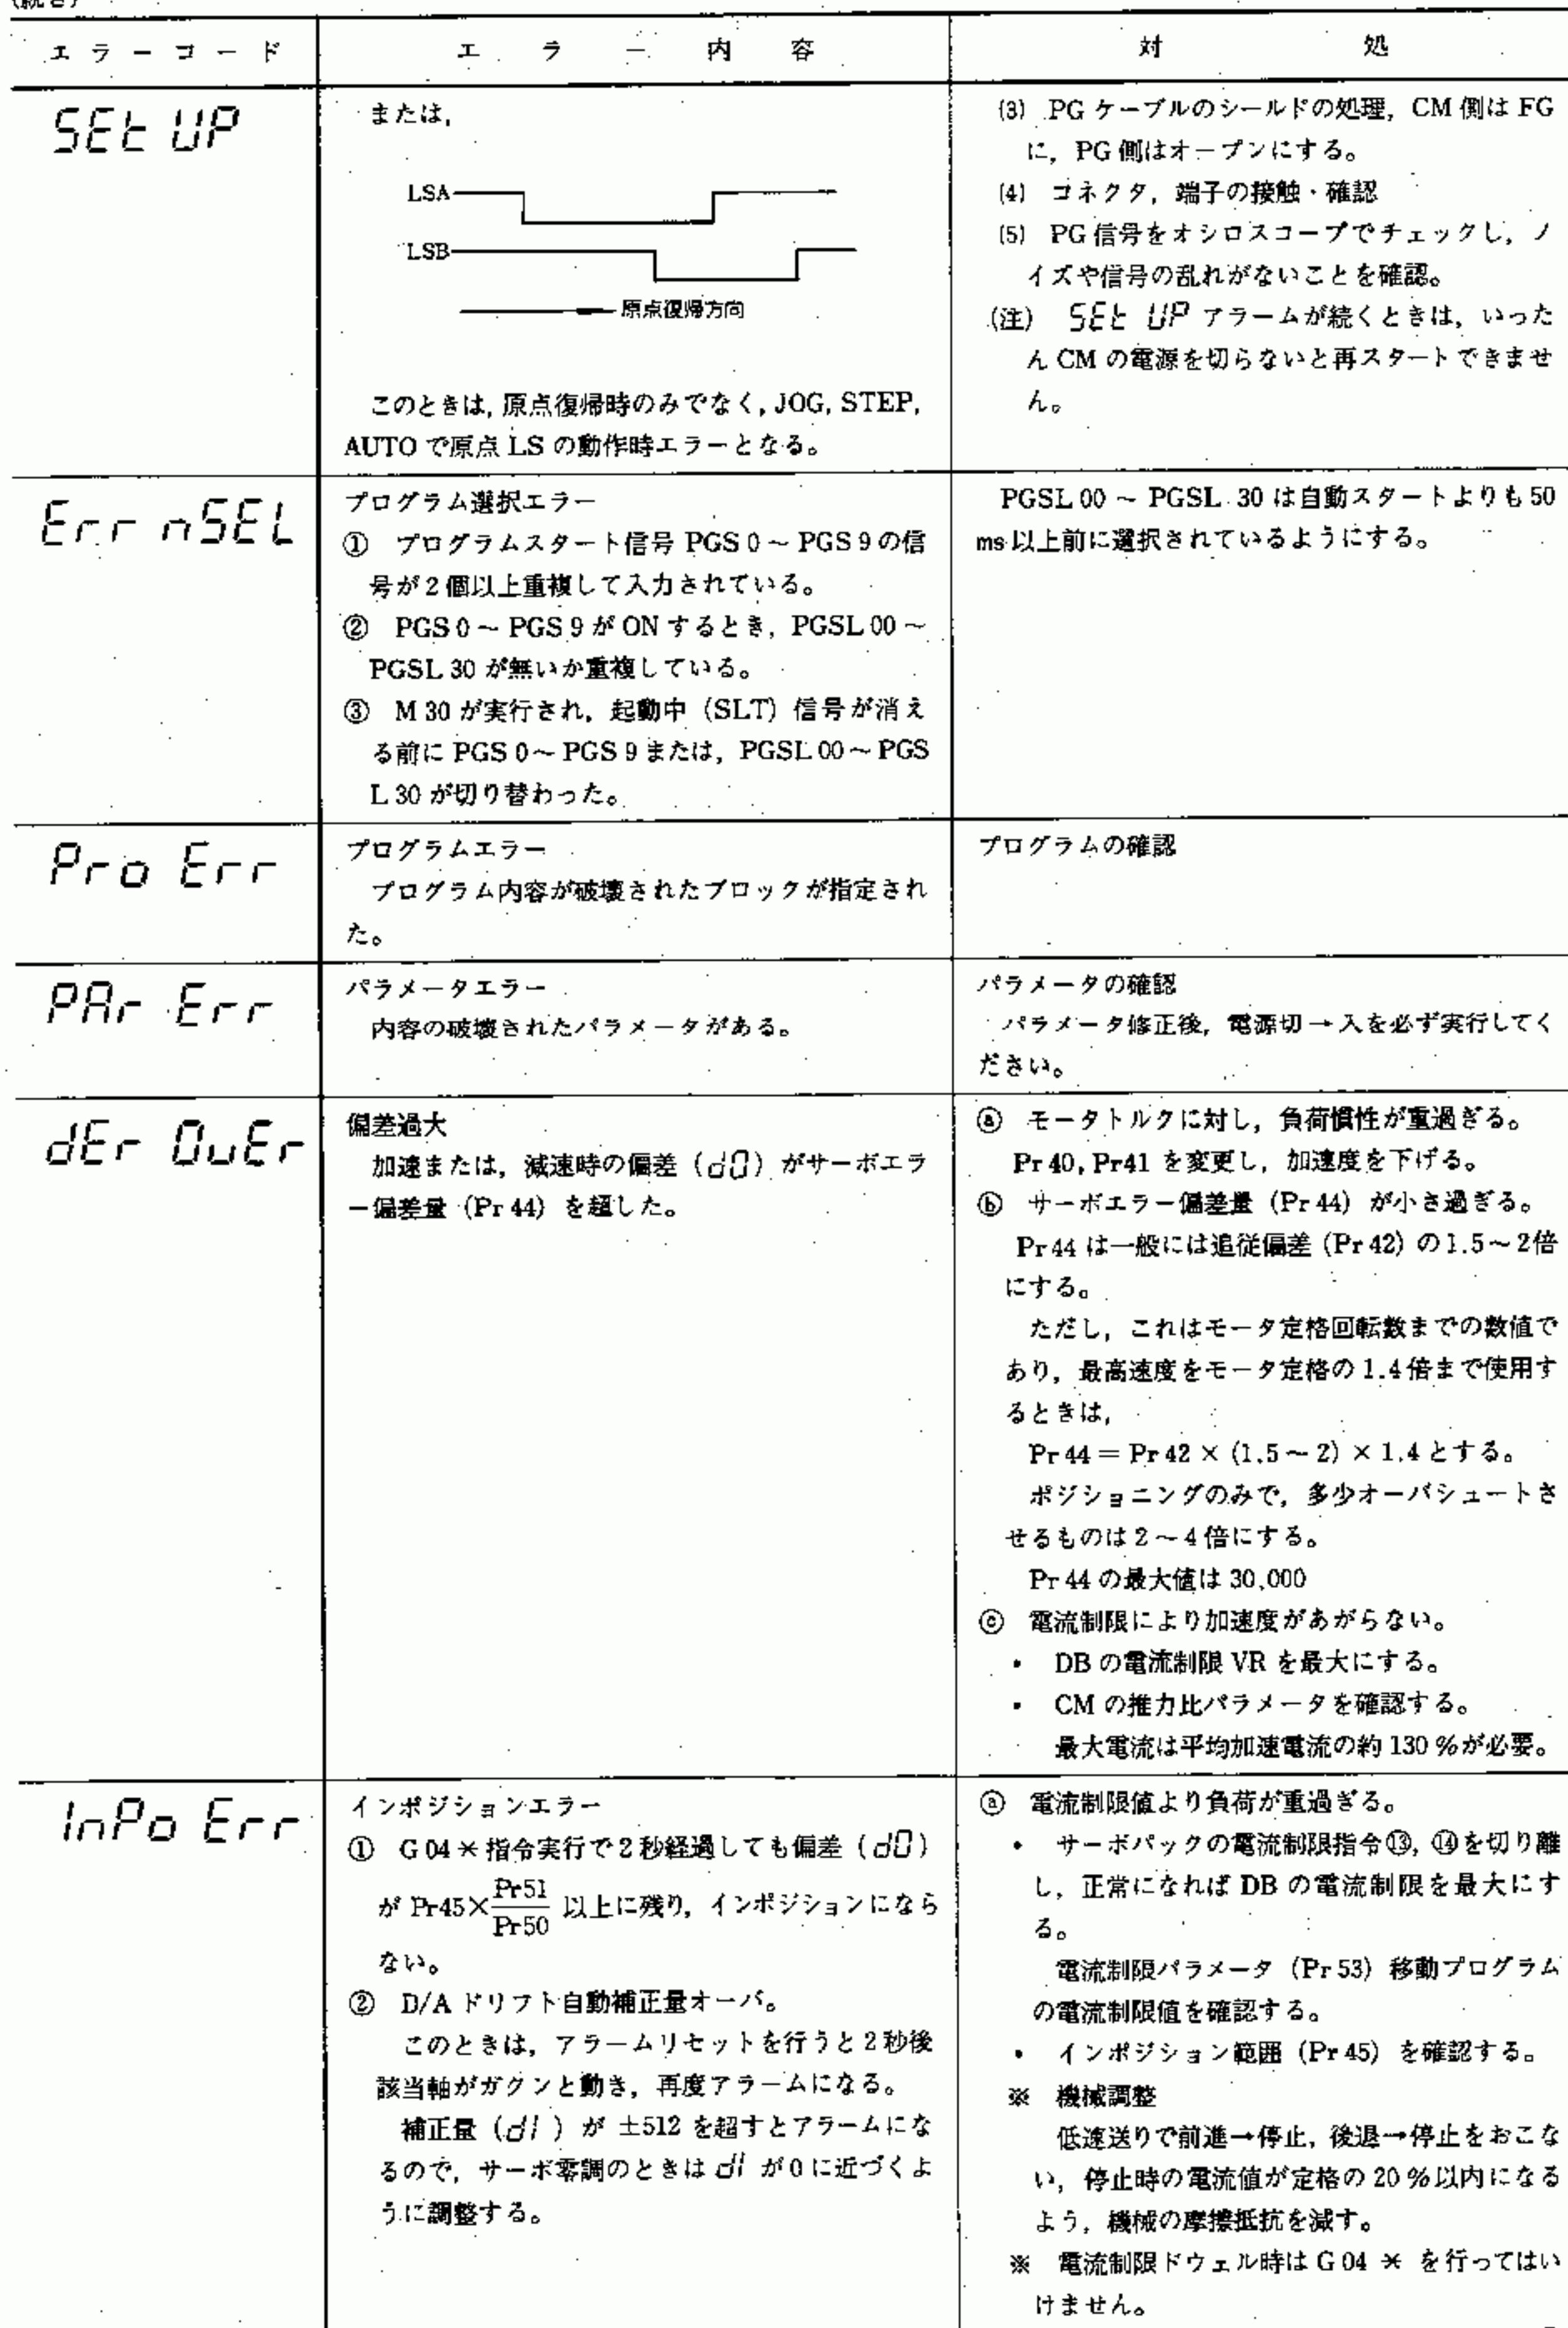 (続き)
エラーコード
エラー内容
対処
SEt UP
または,
LSA
LSB
原点復帰方向
このときは, 原点復帰時のみでなく, JOG, STEP,
AUTO で原点 LS の動作時エラーとなる。
(3) PG ケーブルのシールドの処理, CM 側は FG
に, PG 側はオープンにする。
(4) コネクタ, 端子の接触・確認
(5) PG 信号をオシロスコープでチェックし, ノ
イズや信号の乱れがないことを確認。
(注) SEt UP アラームが続くときは, いった
ん CM の電源を切らないと再スタートできませ
ん。
Err nSEL
プログラム選択エラー
① プログラムスタート信号 PGS 0 ~ PGS 9 の信
号が 2 個以上重複して入力されている。
② PGS 0 ~ PGS 9 が ON するとき, PGSL 00 ~
PGSL 30 が無いか重複している。
③ M 30 が実行され, 起動中 (SLT) 信号が消え
る前に PGS 0 ~ PGS 9 または, PGSL 00 ~ PGS
L 30 が切り替わった。
PGSL 00 ~ PGSL 30 は自動スタートよりも 50
ms 以上前に選択されているようにする。
Pro Err
プログラムエラー
プログラム内容が破壊されたブロックが指定され
た。
プログラムの確認
PAr Err
パラメータエラー
内容の破壊されたパラメータがある。
パラメータの確認
パラメータ修正後, 電源切→入を必ず実行してく
ださい。
dEr OvEr
偏差過大
加速または, 減速時の偏差 (d0) がサーボエラ
ー偏差量 (Pr 44) を超した。
ⓐ モータトルクに対し, 負荷慣性が重過ぎる。
Pr 40, Pr41 を変更し, 加速度を下げる。
ⓑ サーボエラー偏差量 (Pr 44) が小さ過ぎる。
Pr 44 は一般には追従偏差 (Pr 42) の 1.5 ~ 2 倍
にする。
ただし, これはモータ定格回転数までの数値で
あり, 最高速度をモータ定格の 1.4 倍まで使用す
るときは,
Pr 44 = Pr 42 × (1.5 ~ 2) × 1.4 とする。
ポジショニングのみで, 多少オーバシュートさ
せるものは 2 ~ 4 倍にする。
Pr 44 の最大値は 30,000
ⓒ 電流制限により加速度があがらない。
・ DB の電流制限 VR を最大にする。
・ CM の推力比パラメータを確認する。
最大電流は平均加速電流の約 130 % が必要。
InPo Err
インポジションエラー
① G 04 ✳ 指令実行で 2 秒経過しても偏差 (d0)
が Pr45×Pr51/Pr50 以上に残り, インポジションになら
ない。
② D/A ドリフト自動補正量オーバ。
このときは, アラームリセットを行うと 2 秒後
該当軸がガクンと動き, 再度アラームになる。
補正量 (d1) が ±512 を超すとアラームにな
るので, サーボ零調のときは d1 が 0 に近づくよ
うに調整する。
ⓐ 電流制限値より負荷が重過ぎる。
・ サーボパックの電流制限指令⑬, ⑭を切り離
し, 正常になれば DB の電流制限を最大にす
る。
電流制限パラメータ (Pr 53) 移動プログラム
の電流制限値を確認する。
・ インポジション範囲 (Pr 45) を確認する。
※ 機械調整
低速送りで前進→停止, 後退→停止をおこな
い, 停止時の電流値が定格の 20 % 以内になる
よう, 機械の摩擦抵抗を減す。
※ 電流制限ドウェル時は G 04 ✳ を行ってはい
けません。